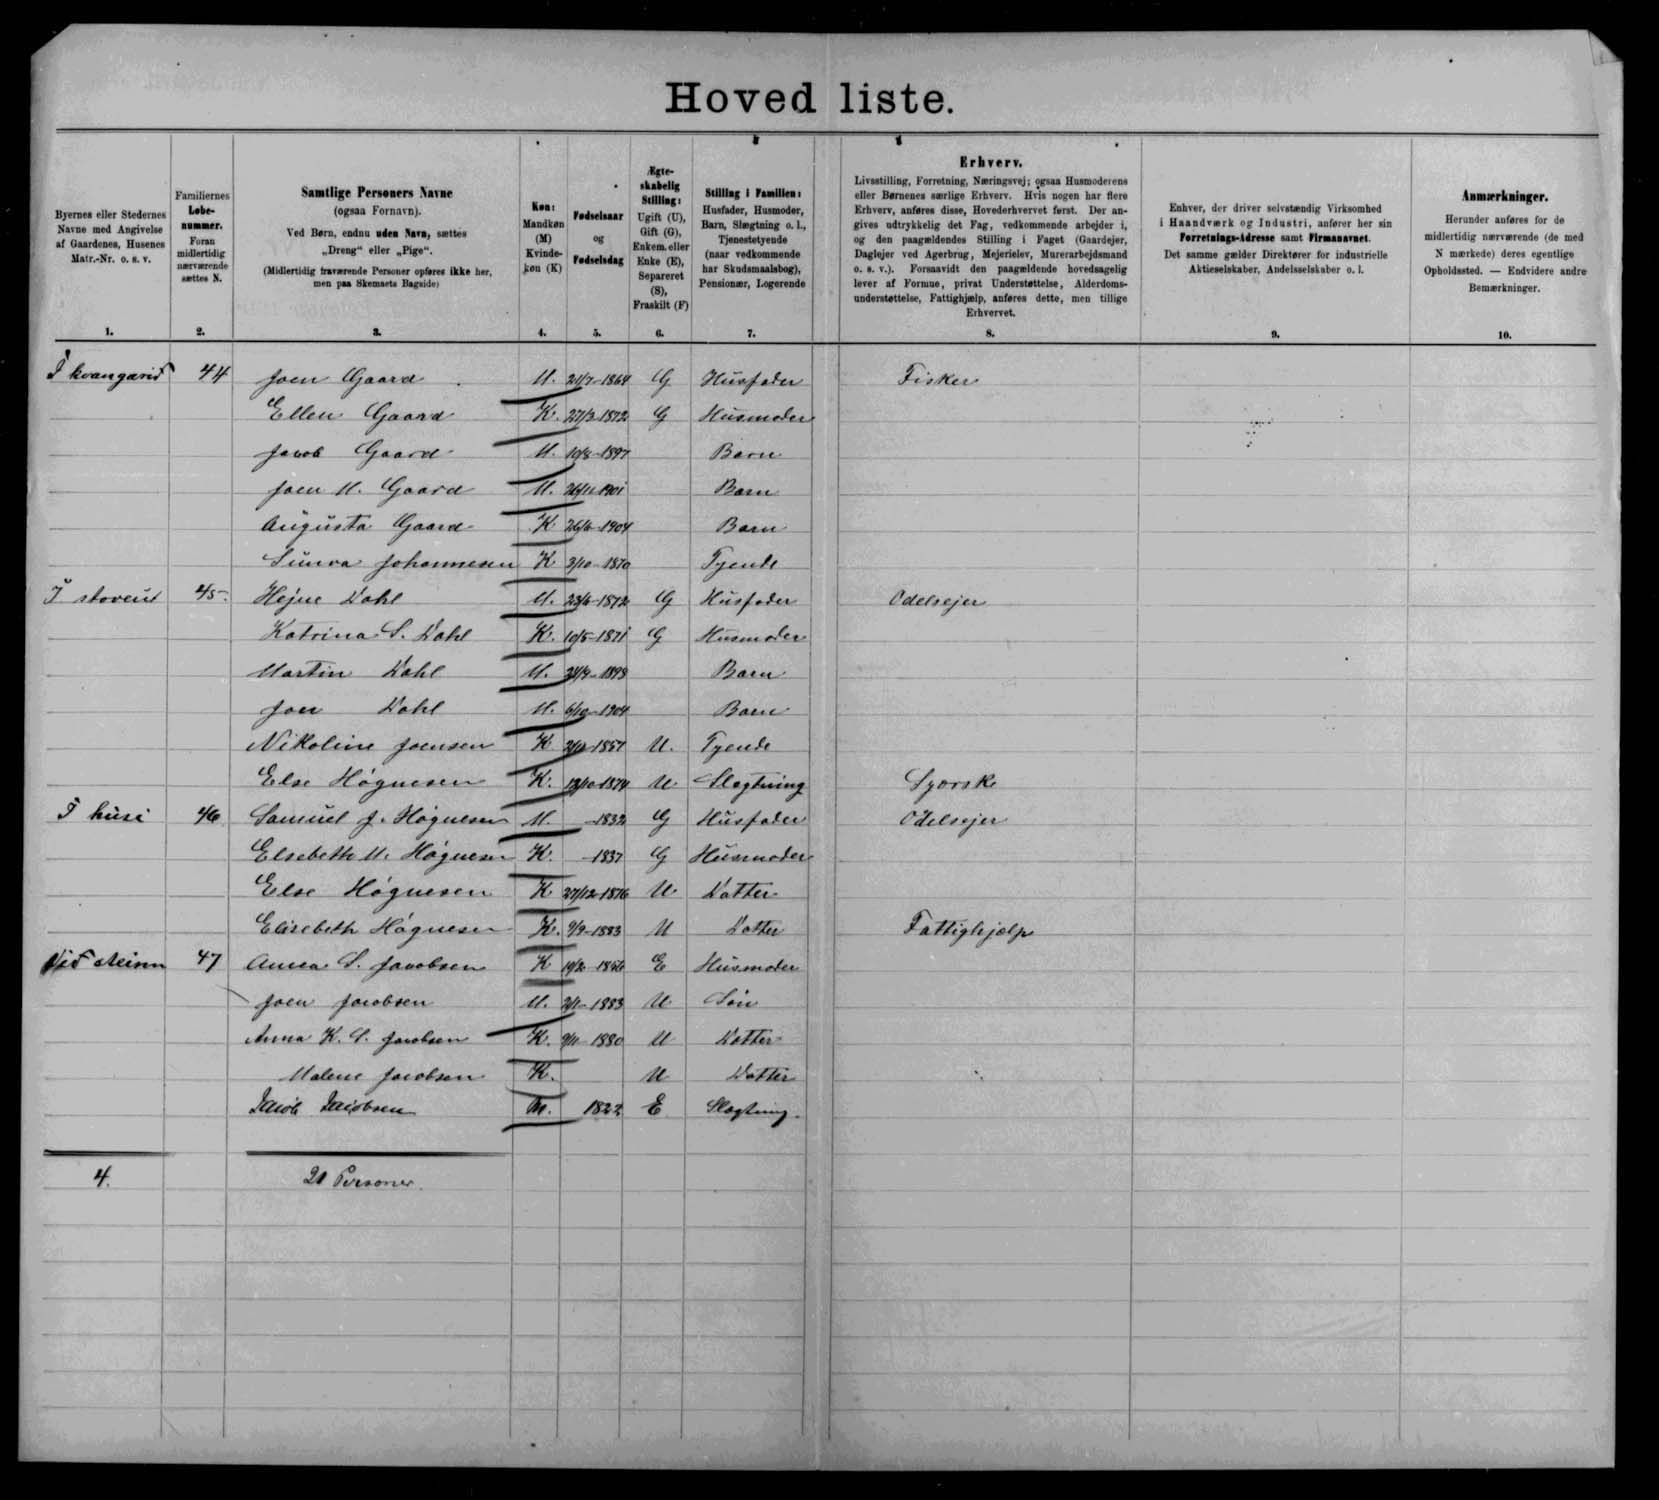 Hoved liste.
Byernes eller Stedernes Navne med Angivelse af Gaardenes, Husenes Matr.-Nr. o. s. v.
Familiernes Løbe-nummer. Foran midlertidig nærværende sættes N.
Samtlige Personers Navne
(ogsaa Fornavn).
Ved Børn, endnu uden Navn, sættes
„Dreng“ eller „Pige“.
(Midlertidig fraværende Personer opføres ikke her,
men paa Skemaets Bagside)
Køn:
Mandkøn
(M)
Kvinde-
køn (K)
Fødselsaar
og
Fødselsdag
Ægte-
skabelig
Stilling:
Ugift (U),
Gift (G),
Enkem. eller
Enke (E),
Separeret
(S),
Fraskilt (F)
Stilling i Familien:
Husfader, Husmoder,
Barn, Slægtning o. l.,
Tjenestetyende
(naar vedkommende
har Skudsmaalsbog),
Pensionær, Logerende
Erhverv.
Livsstilling, Forretning, Næringsvej; ogsaa Husmoderens
eller Børnenes særlige Erhverv. Hvis nogen har flere
Erhverv, anføres disse, Hovederhvervet først. Der an-
gives udtrykkelig det Fag, vedkommende arbejder i,
og den paagældendes Stilling i Faget (Gaardejer,
Daglejer ved Agerbrug, Mejerielev, Murerarbejdsmand
o. s. v.). Forsaavidt den paagældende hovedsagelig
lever af Formue, privat Understøttelse, Alderdoms-
understøttelse, Fattighjælp, anføres dette, men tillige
Erhvervet.
Enhver, der driver selvstændig Virksomhed
i Haandværk og Industri, anfører her sin
Forretnings-Adresse samt Firmanavnet.
Det samme gælder Direktører for industrielle
Aktieselskaber, Andelsselskaber o. l.
Anmærkninger.
Herunder anføres for de
midlertidig nærværende (de med
N mærkede) deres egentlige
Opholdssted. — Endvidere andre
Bemærkninger.
1. 2. 3. 4. 5. 6. 7. 8. 9. 10.
Í kvangarið 44 Joen Gaard M. 21/7-1864 G Husfader Fisker
Ellen Gaard K. 27/3-1872 G Husmoder
Jacob Gaard M. 10/8-1897 Barn
Joen M. Gaard M. 26/11-1901 Barn
Augusta Gaard K 26/6-1904 Barn
Sunva Johannesen K 3/10-1870 Tyende
Í stovuni 45. Hejne Dahl M. 23/6-1872 G Husfader Odelsejer
Katrina S. Dahl K. 10/5-1871 G Husmoder
Martin Dahl M. 1898 Barn
Joen Dahl M. 6/10-1904 Barn
Nikoline Joensen K 1857 U. Tyende
Else Høgnesen K. 12/10-1874 U Slegtning Syerske
Í húsi 46 Samuel J. Høgnesen M. -1832 G Husfader Odelsejer
Elsebeth M. Høgnesen K. -1837 G Husmoder
Else Høgnesen K 27/12-1876 U Datter
Elisebeth Høgnesen K. 9/9-1883 U Datter Fattighjælp
Við steinn 47 Anna S. Jacobsen K 19/2-1856 E Husmoder
Joen Jacobsen M. 2/1-1883 U Søn
Anna K. S. Jacobsen K. 9/11-1880 U Datter
Malene Jacobsen K. U Datter
Jacob Jacobsen M. 1822 E Slægtning.
4. 21 Personer.